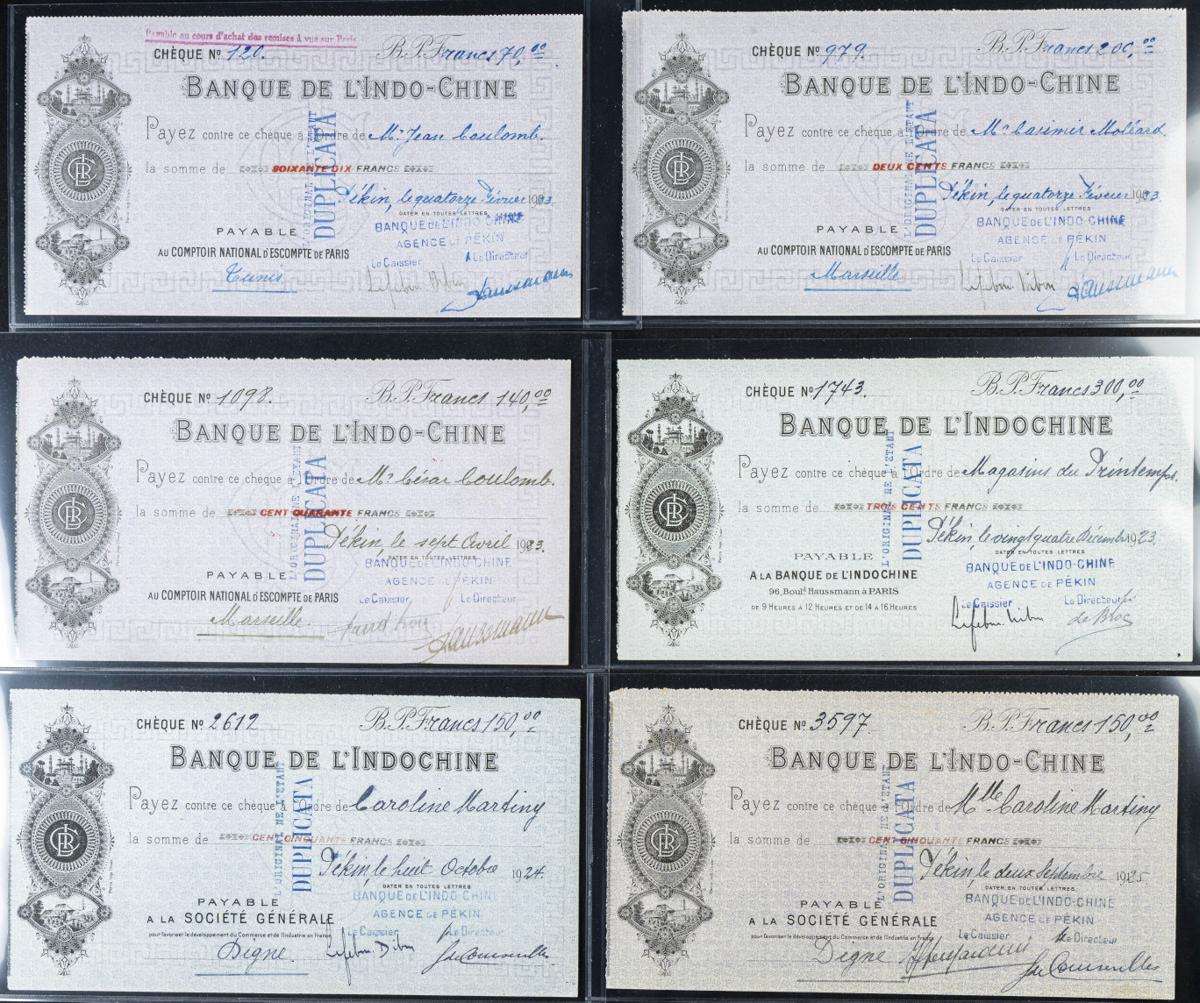 Payable au cours d'achat des remises à vue sur Paris
CHÈQUE Nº 120. B.P. Francs 70,00
BANQUE DE L'INDO-CHINE
Payez contre ce chèque à l'Ordre de Mr Jean Coulomb.
la somme de SOIXANTE DIX FRANCS
Pékin, le quatorze Février 1923.
DATER EN TOUTES LETTRES
L'ORIGINAL NE L'ÉTANT
DUPLICATA
BANQUE DE L'INDO-CHINE
AGENCE DE PÉKIN
PAYABLE
AU COMPTOIR NATIONAL D'ESCOMPTE DE PARIS
Le Caissier Le Directeur
Tunis
CHÈQUE Nº 979. B.P. Francs 200,00
BANQUE DE L'INDO-CHINE
Payez contre ce chèque à l'Ordre de Mr Casimir Moléard.
la somme de DEUX CENTS FRANCS
Pékin, le quatorze Février 1923
DATER EN TOUTES LETTRES
L'ORIGINAL NE L'ÉTANT
DUPLICATA
BANQUE DE L'INDO-CHINE
AGENCE DE PÉKIN
PAYABLE
AU COMPTOIR NATIONAL D'ESCOMPTE DE PARIS
Le Caissier Le Directeur
Marseille
CHÈQUE Nº 1098. B.P. Francs 140,00
BANQUE DE L'INDO-CHINE
Payez contre ce chèque à l'Ordre de Mr César Coulomb.
la somme de CENT QUARANTE FRANCS
Pékin, le sept Avril 1923.
DATER EN TOUTES LETTRES
L'ORIGINAL NE L'ÉTANT
DUPLICATA
BANQUE DE L'INDO-CHINE
AGENCE DE PÉKIN
PAYABLE
AU COMPTOIR NATIONAL D'ESCOMPTE DE PARIS
Le Caissier Le Directeur
Marseille
CHÈQUE Nº 1743. B.P. Francs 300,00
BANQUE DE L'INDOCHINE
Payez contre ce chèque à l'Ordre de Magasins du Printemps.
la somme de TROIS CENTS FRANCS
Pékin, le vingt quatre Décembre 1923.
DATER EN TOUTES LETTRES
L'ORIGINAL NE L'ÉTANT
DUPLICATA
BANQUE DE L'INDO-CHINE
AGENCE DE PÉKIN
PAYABLE
A LA BANQUE DE L'INDOCHINE
96, Boulᵈ Haussmann à PARIS
DE 9 HEURES À 12 HEURES ET DE 14 À 16 HEURES
Le Caissier Le Directeur
CHÈQUE Nº 2612 B.P. Francs 150,00
BANQUE DE L'INDOCHINE
Payez contre ce chèque à l'Ordre de Caroline Martiny
la somme de CENT CINQUANTE FRANCS
Pékin, le huit Octobre 1924.
DATER EN TOUTES LETTRES
L'ORIGINAL NE L'ÉTANT
DUPLICATA
BANQUE DE L'INDO-CHINE
AGENCE DE PÉKIN
PAYABLE
A LA SOCIÉTÉ GÉNÉRALE
pour favoriser le développement du Commerce et de l'Industrie en France
Le Caissier Le Directeur
Digne.
CHÈQUE Nº 3597. B.P. Francs 150,00
BANQUE DE L'INDO-CHINE
Payez contre ce chèque à l'Ordre de Mlle Caroline Martiny
la somme de CENT CINQUANTE FRANCS
Pékin, le deux Septembre 1925
DATER EN TOUTES LETTRES
L'ORIGINAL NE L'ÉTANT
DUPLICATA
BANQUE DE L'INDO-CHINE
AGENCE DE PÉKIN
PAYABLE
A LA SOCIÉTÉ GÉNÉRALE
pour favoriser le développement du Commerce et de l'Industrie en France
Le Caissier Le Directeur
Digne